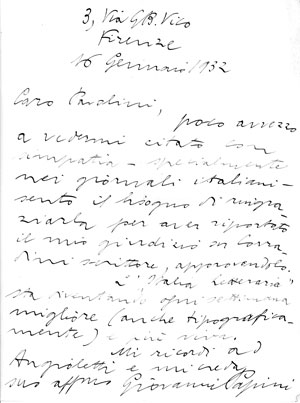 3, Via G.B. Vico
Firenze
16 Gennaio 1932
Caro Pavolini,
poco avvezzo
a vedermi citato con
simpatia - specialmente
nei giornali italiani -
sento il bisogno di ringra-
ziarla per aver riportato
il mio giudizio su Corra-
dini scrittore, approvandolo.
L'"Italia Letteraria"
sta diventando ogni settimana
migliore (anche tipografica-
mente) e più viva.
Mi ricordi ad
Angioletti e mi creda
suo affmo Giovanni Papini